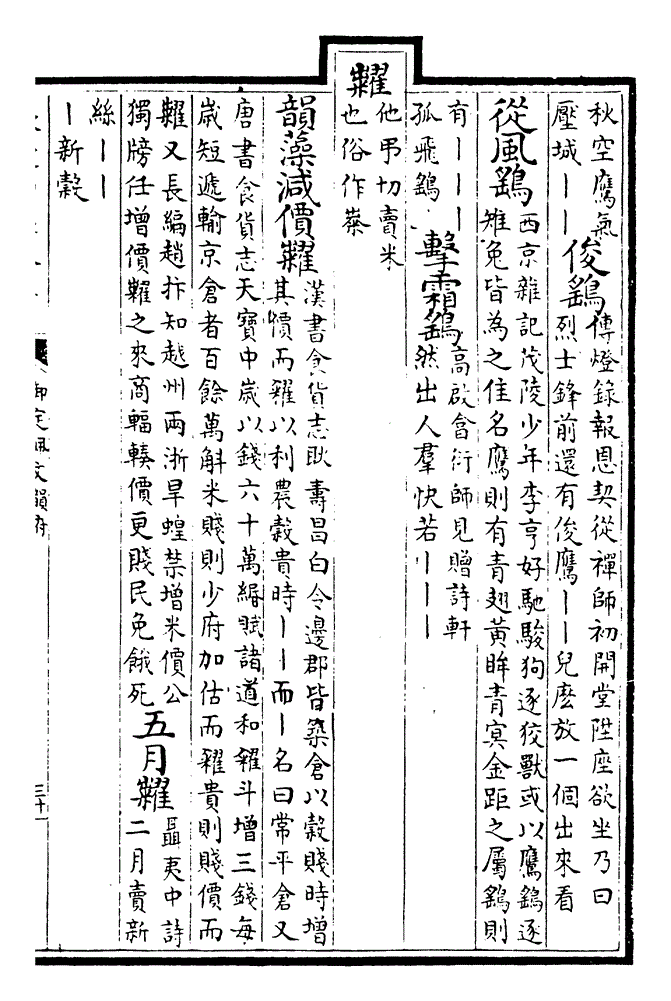 秋空鷹氣
壓城丨丨
俊鷂
傳燈錄報恩契從禪師初開堂陞座欲坐乃曰
烈士鋒前還有俊鷹丨丨兒麽放一個出來看
從風鷂
西京雜記茂陵少年李亨好馳駿狗逐狡獸或以鷹鷂逐
雉兔皆為之佳名鷹則有青翅黃眸青冥金距之屬鷂則
有丨丨丨
孤飛鷂
擊霜鷂
高啟會衍師見贈詩軒
然出人羣快若丨丨丨
糶
他弔切賣米
也俗作
韻藻減價糶
漢書食貨志耿壽昌白令邊郡皆築倉以穀賤時增
其價而糴以利農穀貴時丨丨而丨名曰常平倉又
唐書食貨志天寶中歲以錢六十萬緡賦諸道和糴斗增三錢每
歲短遞輸京倉者百餘萬斛米賤則少府加估而糴貴則賤價而
糶又長編趙抃知越州兩浙旱蝗禁增米價公
獨牓任增價糶之米商輻輳價更賤民免餓死
五月糶
聶夷中詩
二月賣新
絲丨丨
丨新穀
御定佩文韻府